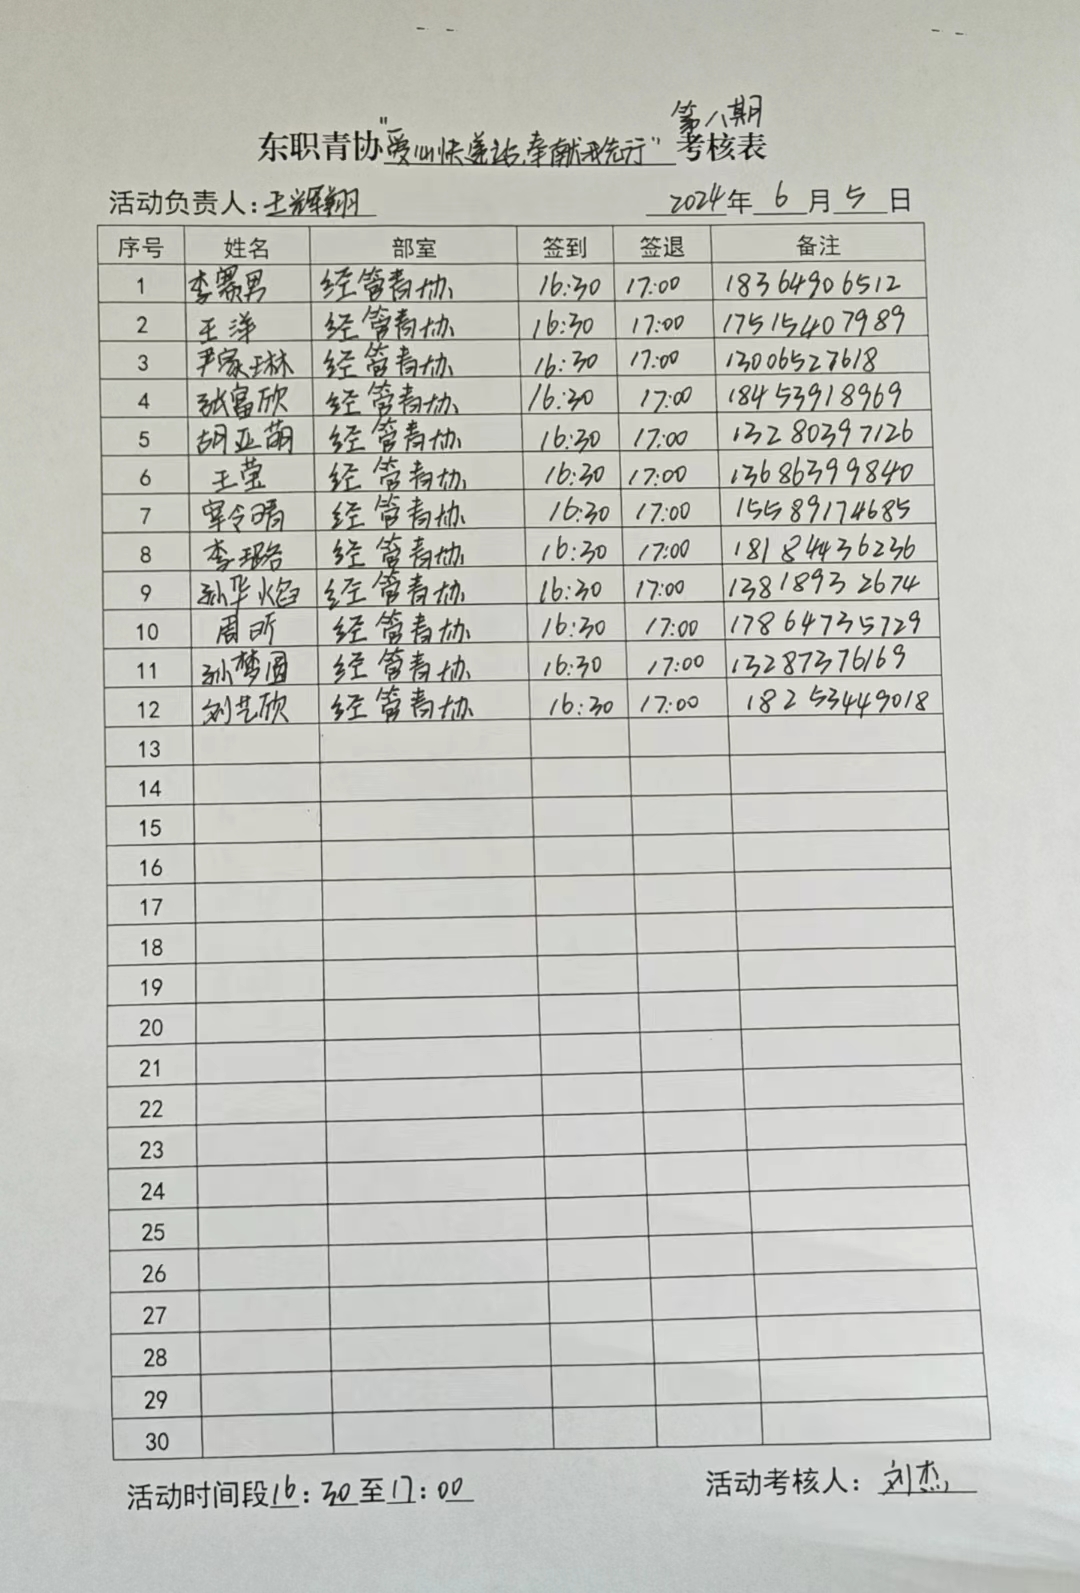 第八期
东职青协"爱心快递站,奉献我先行"考核表
活动负责人:王辉翔 2024年6月5日
序号 姓名 部室 签到 签退 备注
1 李赛男 经管青协 16:30 17:00 18364906512
2 王洋 经管青协 16:30 17:00 17515407989
3 尹家琳 经管青协 16:30 17:00 13006527618
4 张富欣 经管青协 16:30 17:00 18453918969
5 胡亚萌 经管青协 16:30 17:00 13280397126
6 王莹 经管青协 16:30 17:00 13686399840
7 经管青协 16:30 17:00 15589174685
8 李璐 经管青协 16:30 17:00 18184436236
9 孙华焰 经管青协 16:30 17:00 13818932674
10 周昕 经管青协 16:30 17:00 17864735729
11 孙梦圆 经管青协 16:30 17:00 13287376169
12 刘艺欣 经管青协 16:30 17:00 18253449018
13
14
15
16
17
18
19
20
21
22
23
24
25
26
27
28
29
30
活动时间段16:30至17:00 活动考核人:刘杰